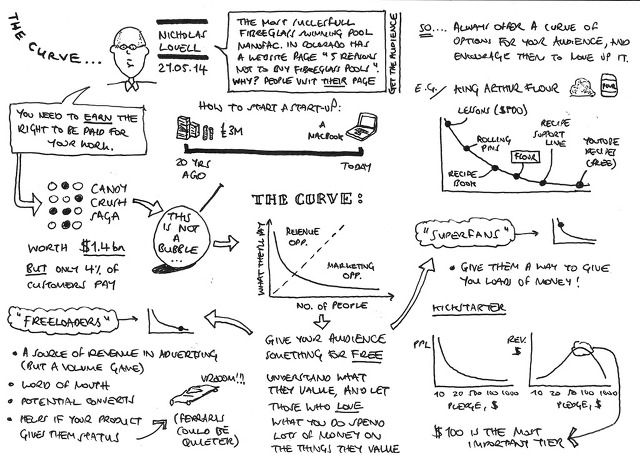 THE CURVE...
NICHOLAS
LOVELL
21.05.14
THE MOST SUCCESSFULL
FIBREGLASS SWIMMING POOL
MANUFAC. IN COLORADO HAS
A WEBSITE PAGE "5 REASONS
NOT TO BUY FIBREGLASS POOLS".
WHY? PEOPLE VISIT THEIR PAGE
GET THE AUDIENCE
SO.... ALWAYS OFFER A CURVE OF
OPTIONS FOR YOUR AUDIENCE, AND
ENCOURAGE THEM TO MOVE UP IT.
E.G./ KING ARTHUR FLOUR
FLOUR
LESSONS ($800)
ROLLING
PINS
RECIPE
BOOK
FLOUR
RECIPE
SUPPORT
LINE
YOUTUBE
RECIPES
(FREE)
YOU NEED TO EARN THE
RIGHT TO BE PAID FOR
YOUR WORK.
HOW TO START A START-UP:
£3M
A
MACBOOK
20 YRS
AGO
TODAY
CANDY
CRUSH
SAGA
WORTH $1.4bn
BUT ONLY 4% OF
CUSTOMERS PAY
THIS
IS NOT
A
BUBBLE
...
THE CURVE:
WHAT THEY'LL PAY
REVENUE
OPP.
MARKETING
OPP.
NO. OF PEOPLE
"SUPERFANS"
• GIVE THEM A WAY TO GIVE
YOU LOADS OF MONEY!
KICKSTARTER
PPL
10 20 50 100 1000
PLEDGE, $
REV.
$
10 20 50 100 1000
PLEDGE, $
$100 IS THE MOST
IMPORTANT TIER
"FREELOADERS"
• A SOURCE OF REVENUE IN ADVERTISING
(BUT A VOLUME GAME)
• WORD OF MOUTH
• POTENTIAL CONVERTS
• HELPS IF YOUR PRODUCT
GIVES THEM STATUS
VROOM!!!
(FERRARIS
COULD BE
QUIETER)
GIVE YOUR AUDIENCE
SOMETHING FOR FREE
UNDERSTAND WHAT
THEY VALUE, AND LET
THOSE WHO LOVE
WHAT YOU DO SPEND
LOTS OF MONEY ON
THE THINGS THEY VALUE